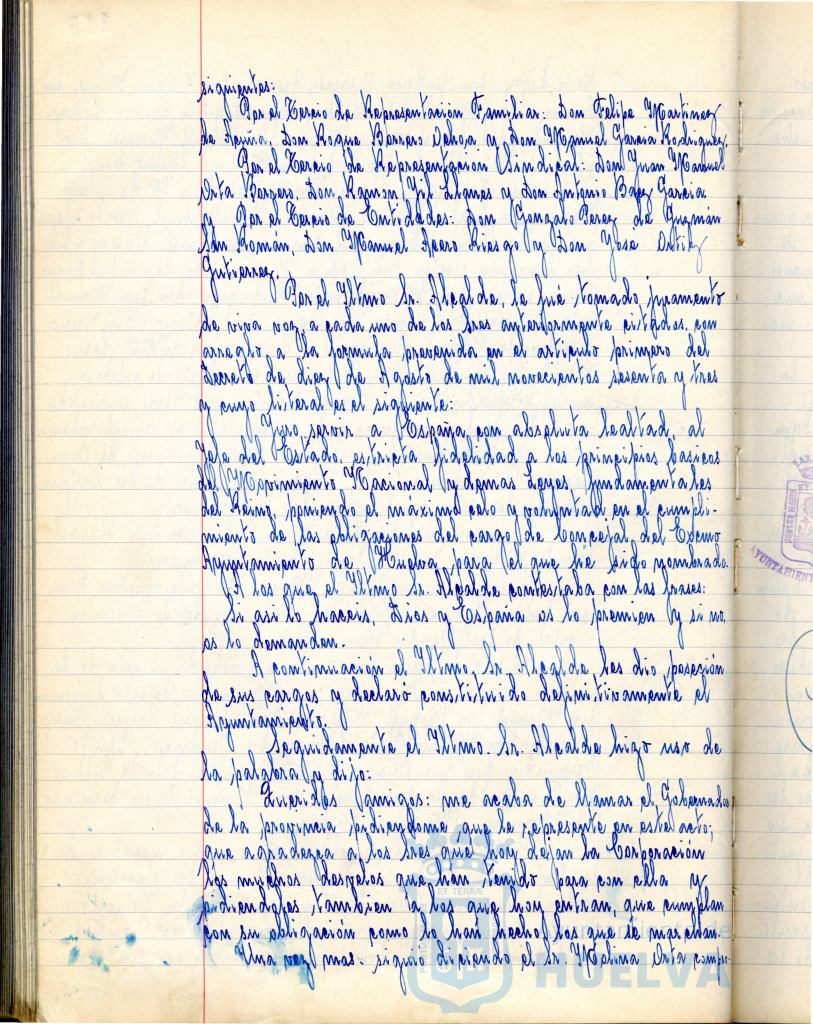 siguientes:
Por el Tercio de Representación Familiar: Don Felipe Martinez
de Acuña, Don Roque Barrero Ochoa y Don Manuel Garcia Rodriguez.
Por el Tercio de Representación Sindical: Don Juan Manuel
Orta Borrero, Don Ramon Gil Llanes y Don Antonio Baez Garcia
y Por el Tercio de Entidades: Don Gonzalo Perez de Guzmán
San Román, Don Manuel Acero Riesgo y Don Jose Ortiz
Gutierrez.
Por el Iltmo Sr. Alcalde, le fué tomado juramento
de viva voz, a cada uno de los Sres anteriormente citados, con
arreglo a la formula prevenida en el articulo primero del
Decreto de diez de Agosto de mil novecientos sesenta y tres
y cuyo literal es el siguiente:
Juro servir a España con absoluta lealtad, al
Jefe del Estado, estricta fidelidad a los principios basicos
del Movimiento Nacional y demas Leyes fundamentales
del Reino, poniendo el máximo celo y voluntad en el cumpli-
miento de las obligaciones del cargo de Concejal del Excmo
Ayuntamiento de Huelva para el que he sido nombrado.
A los que el Iltmo Sr. Alcalde contestaba con las frases:
Si asi lo haceis, Dios y España os lo premien y si no,
os lo demanden.
A continuación el Iltmo. Sr. Alcalde les dio posesión
de sus cargos y declaró constituido definitivamente el
Ayuntamiento.
Seguidamente el Iltmo. Sr. Alcalde hizo uso de
la palabra y dijo:
Queridos amigos: me acaba de llamar el Gobernador
de la provincia pidiendome que le represente en este acto;
que agradezca a los sres que hoy dejan la Corporación
los muchos desvelos que han tenido para con ella y
pidiendoles tambien a los que hoy entran, que cumplan
con su obligación como lo han hecho los que se marchan.
Una vez mas - siguió diciendo el Sr. Molina Orta compr-
AYUNTAMIENT
HUELVA